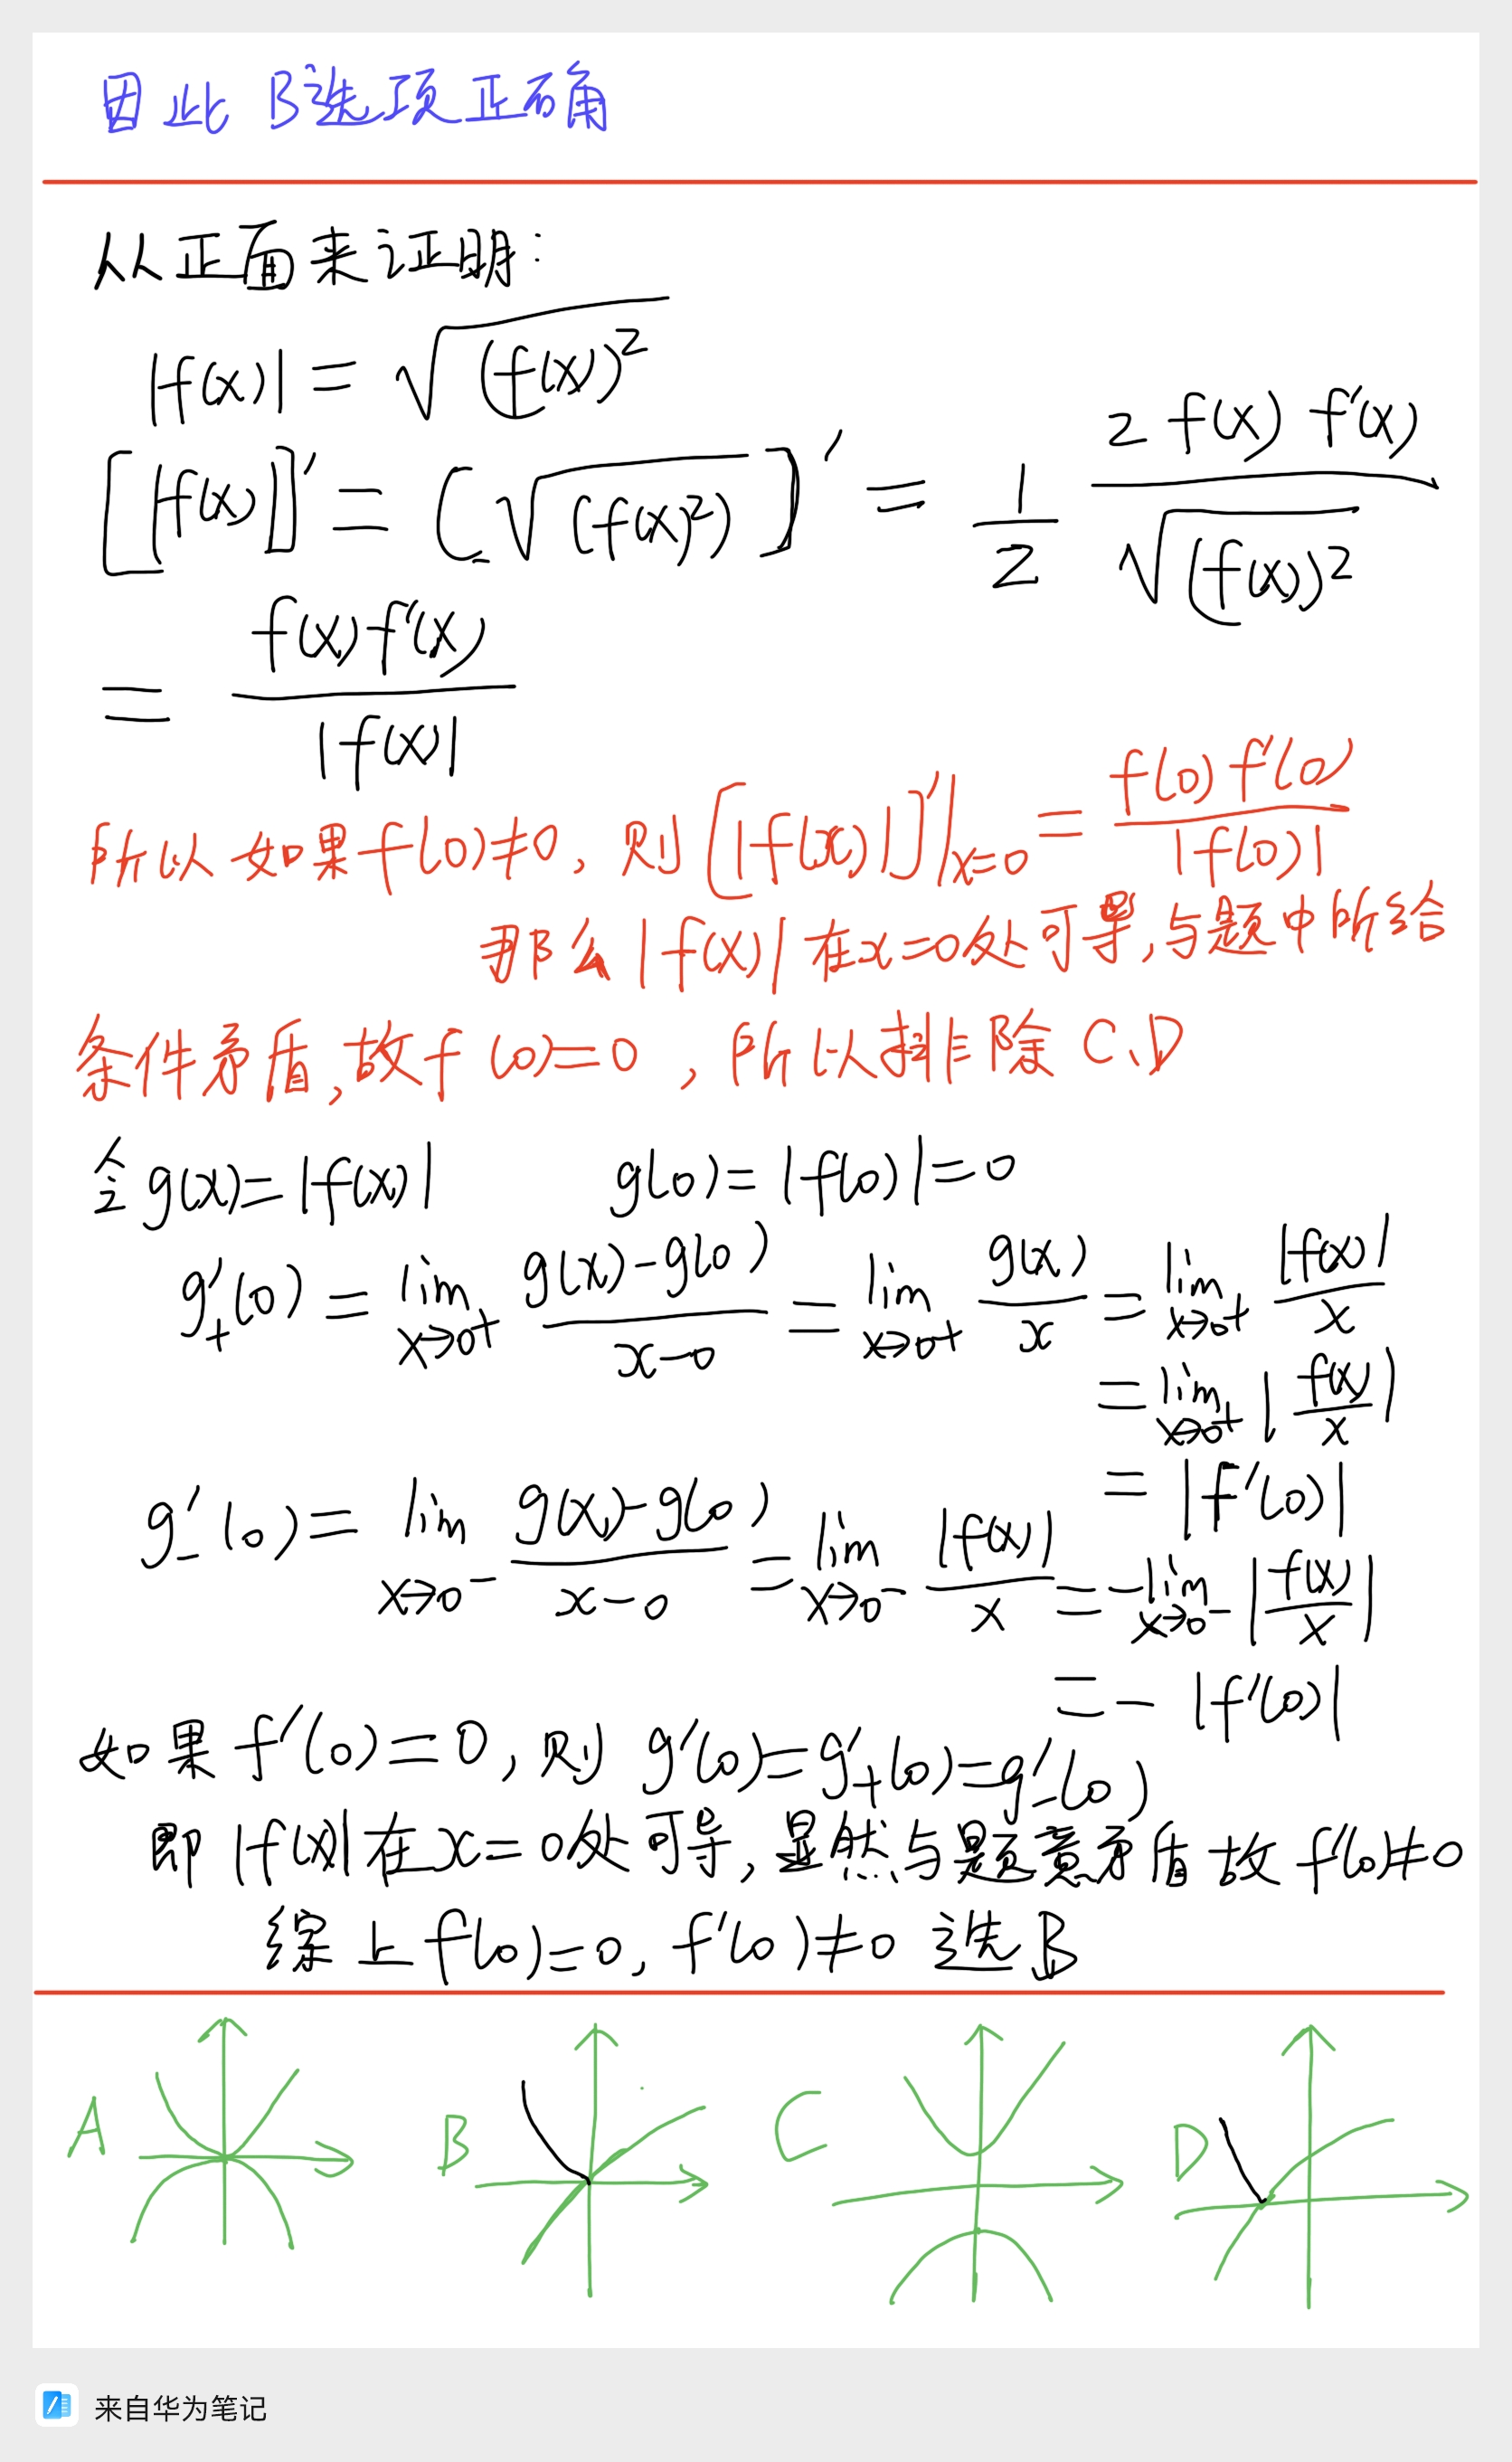 因此 B选项正确
从正面来证明:
|f(x)| = √(f(x))²
[|f(x)|]' = (√((f(x)²)))' = 1/2 2f(x)f'(x)/√(f(x))²
= f(x)f'(x)/|f(x)|
所以如果f(0)≠0,则[|f(x)|]'|x=0 = f(0)f'(0)/|f(0)|
那么|f(x)|在x=0处可导,与题中所给
条件矛盾,故f(0)=0,所以排除C、D
令g(x)=|f(x)| g(0)=|f(0)|=0
g'₊(0) = lim x→0⁺ g(x)-g(0)/x-0 = lim x→0⁺ g(x)/x = lim x→0⁺ |f(x)|/x
= lim x→0⁺ |f(x)/x|
= |f'(0)|
g'₋(0) = lim x→0⁻ g(x)-g(0)/x-0 = lim x→0⁻ |f(x)|/x = -lim x→0⁻ |f(x)/x|
= -|f'(0)|
如果f'(0)=0,则g'(0)=g'₊(0)=g'₋(0)
即|f(x)|在x=0处可导,显然与题意矛盾故f'(0)≠0
综上f(0)=0,f'(0)≠0 选B
A B C D
来自华为笔记